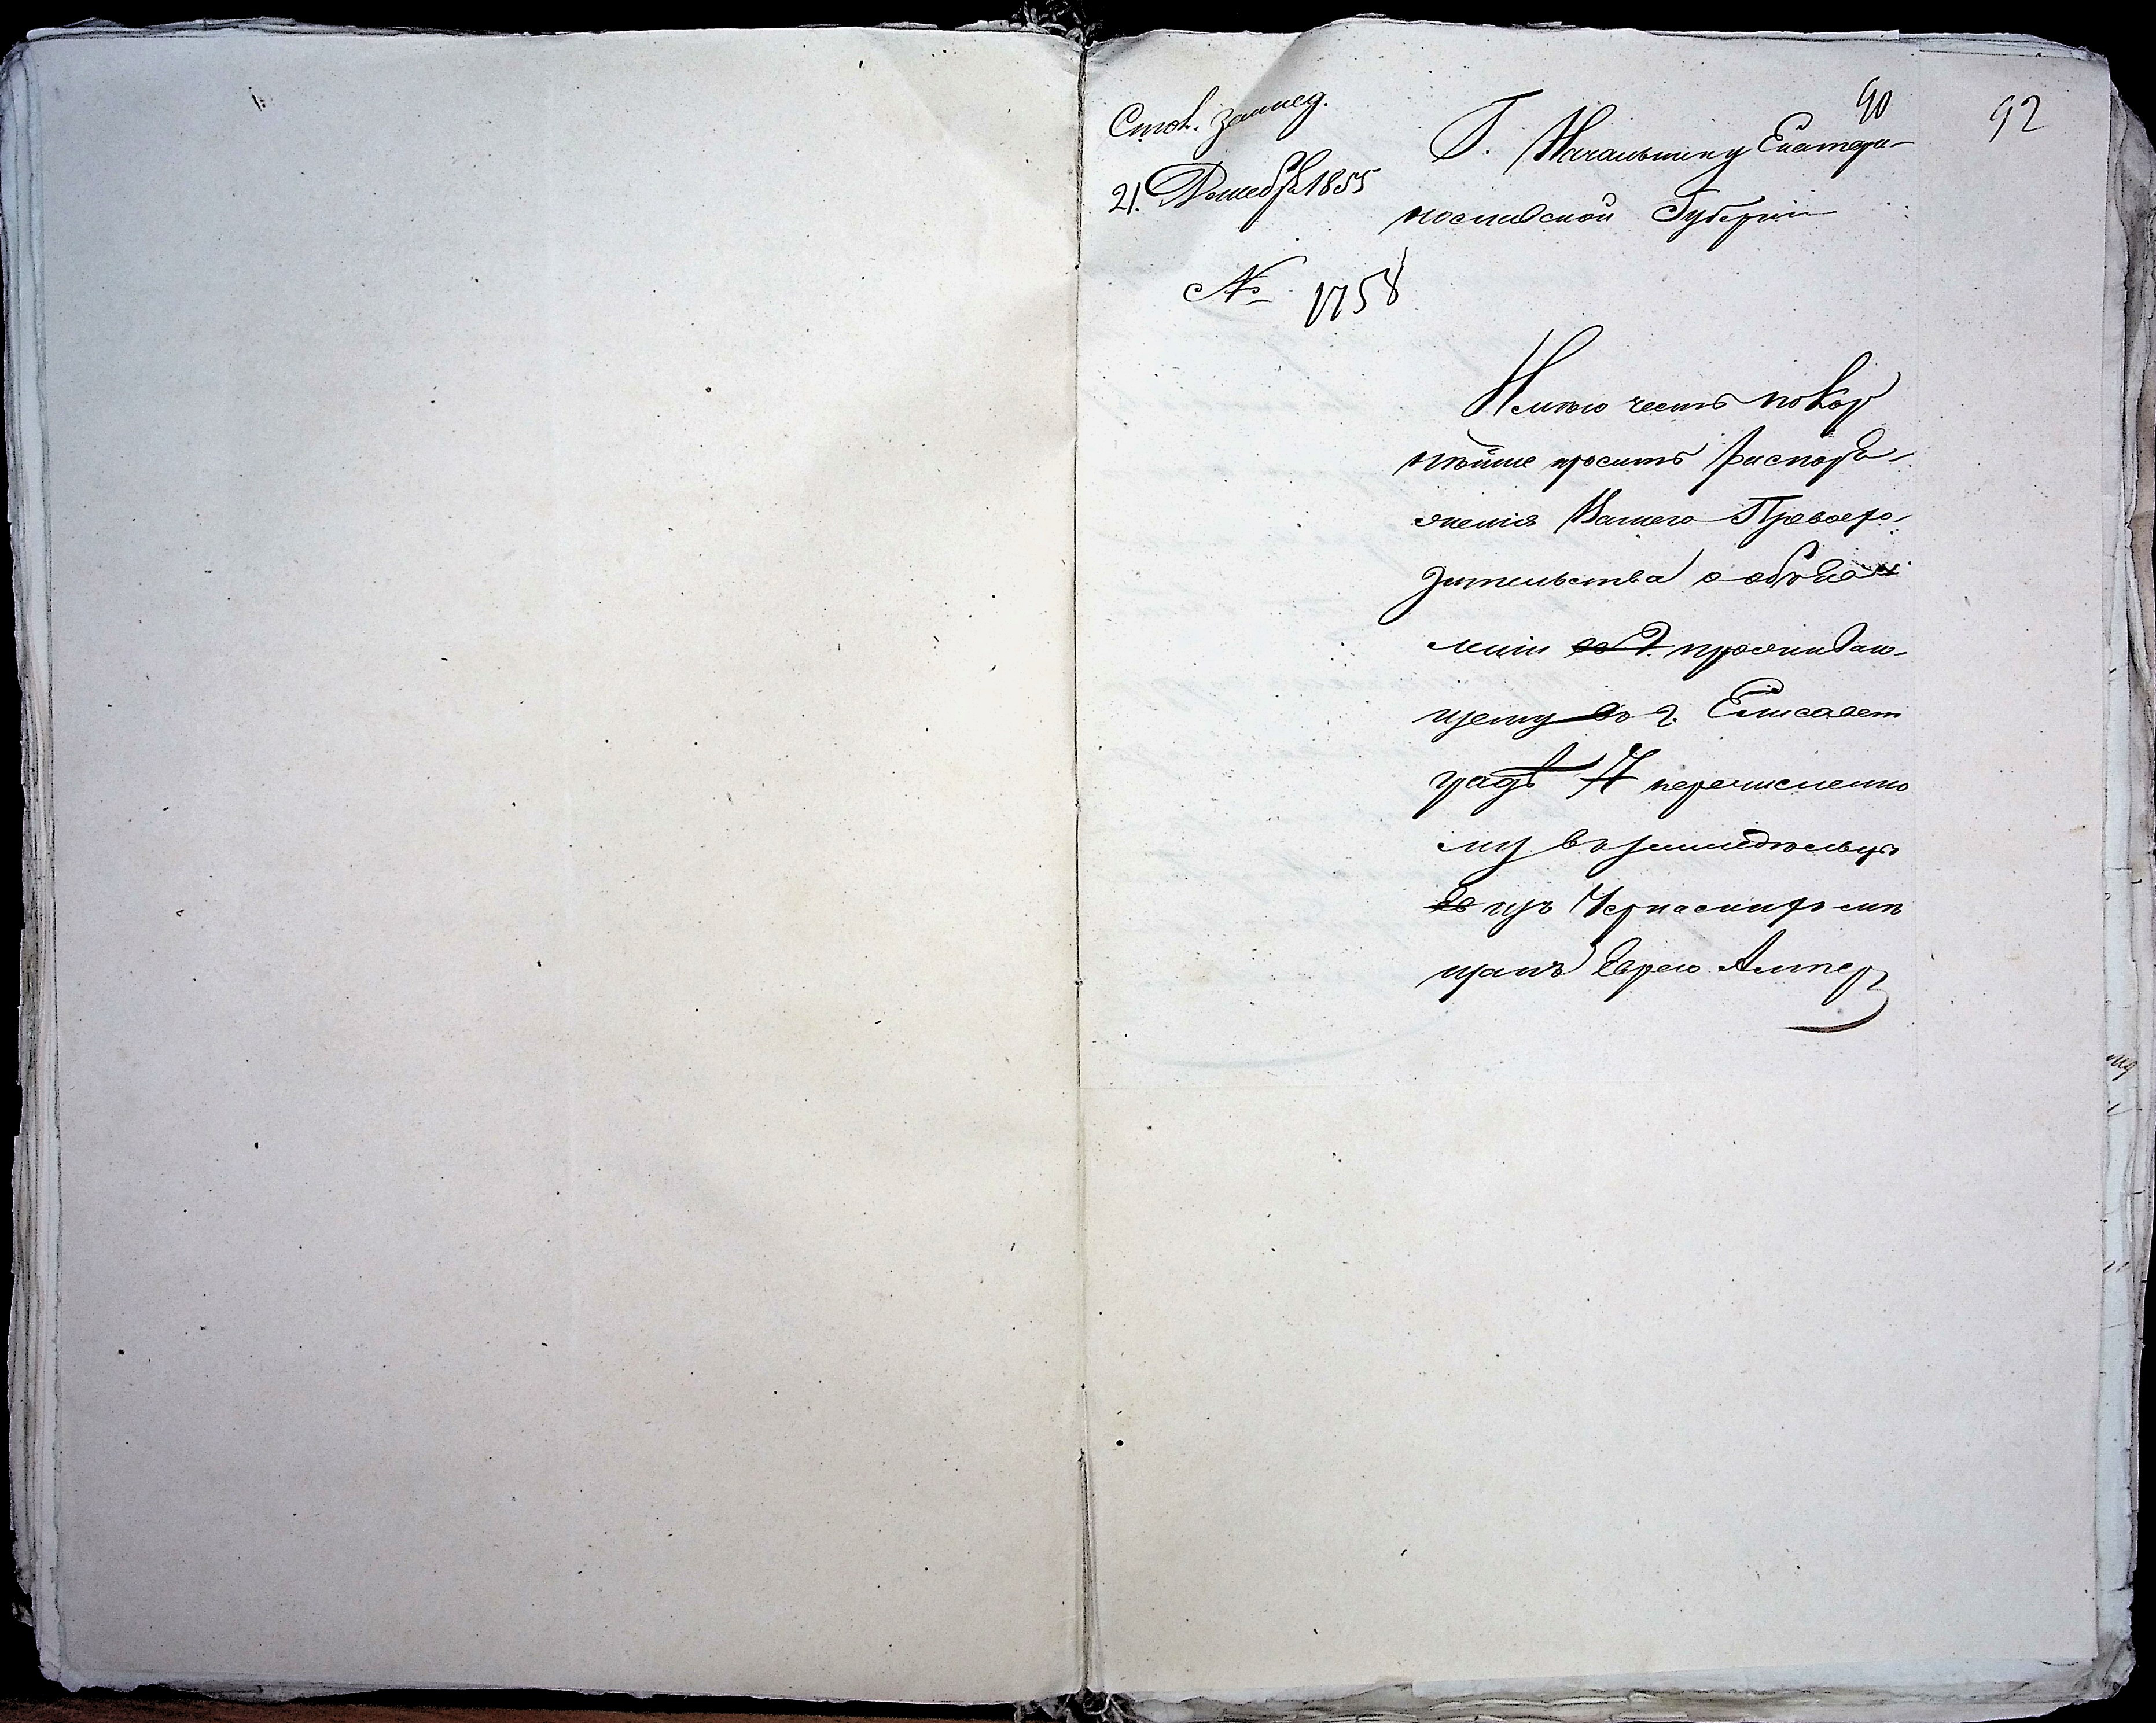 90
92
Стол. замед.
21. Декабря 1855
№ 1758
Г. Начальнику Екатери-
нославской Губернии
Имѣю честь покор
нѣйше просить распоря-
женія Вашего Превосхо-
дительства о объявле
ніи проживаю-
щему въ г. Елисавет
градѣ перечисленно
му въ земледѣльцы
изъ Черкаскихъ мѣ
щанъ Еврею Алтер